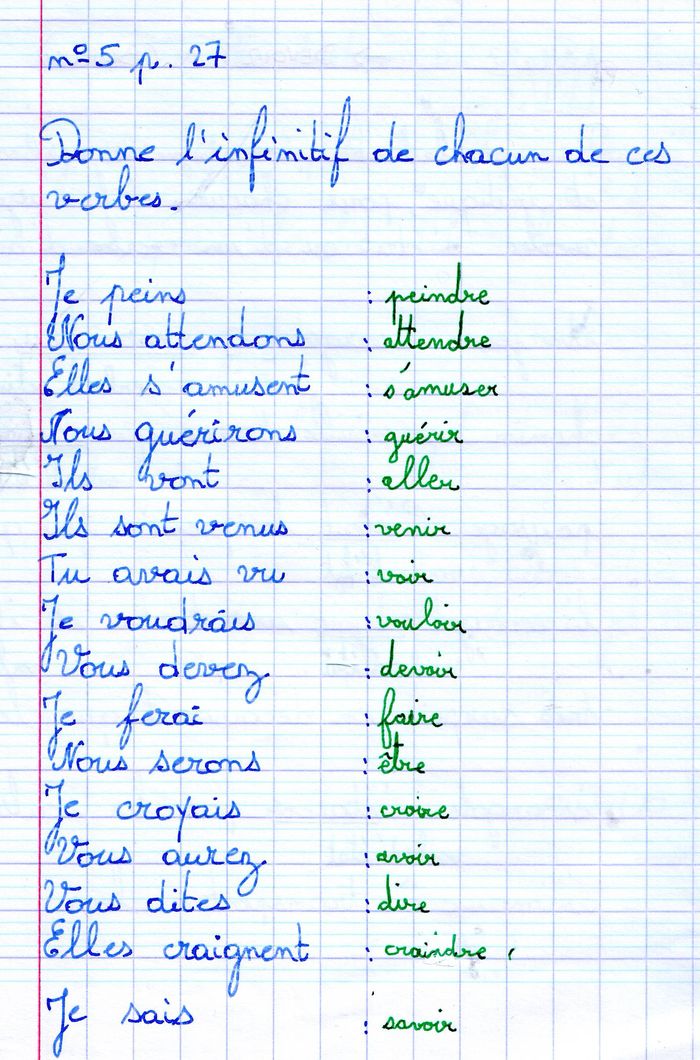 nº5 p. 27
Donne l'infinitif de chacun de ces
verbes.
Je peins : peindre
Nous attendons : attendre
Elles s'amusent : s'amuser
Nous guérirons : guérir
Ils vont : aller
Ils sont venus : venir
Tu avais vu : voir
Je voudrais : vouloir
Vous devez : devoir
Je ferai : faire
Nous serons : être
Je croyais : croire
Vous aurez : avoir
Vous dites : dire
Elles craignent : craindre
Je sais : savoir